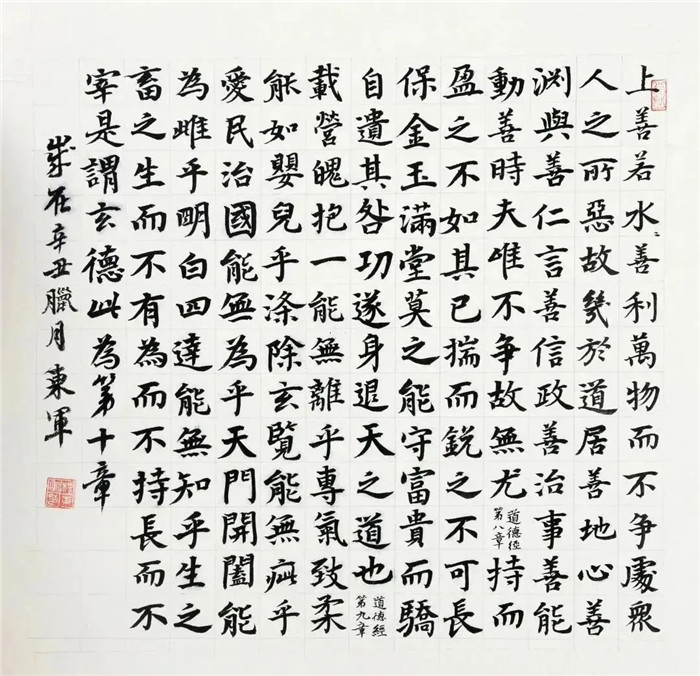 上善若水〻善利萬物而不争處衆
人之所惡故幾於道居善地心善
渊與善仁言善信政善治事善能
動善時夫唯不争故無尤道德經第八章持而
盈之不如其已揣而銳之不可長
保金玉滿堂莫之能守富貴而驕
自遺其咎功遂身退天之道也道德經第九章
載營魄抱一能無離乎專氣致柔
能如嬰兒乎涤除玄覽能無疵乎
愛民治國能無為乎天門開闔能
為雌乎明白四達能無知乎生之
畜之生而不有為而不持長而不
宰是謂玄德此為第十章
歲在辛丑臘月東軍